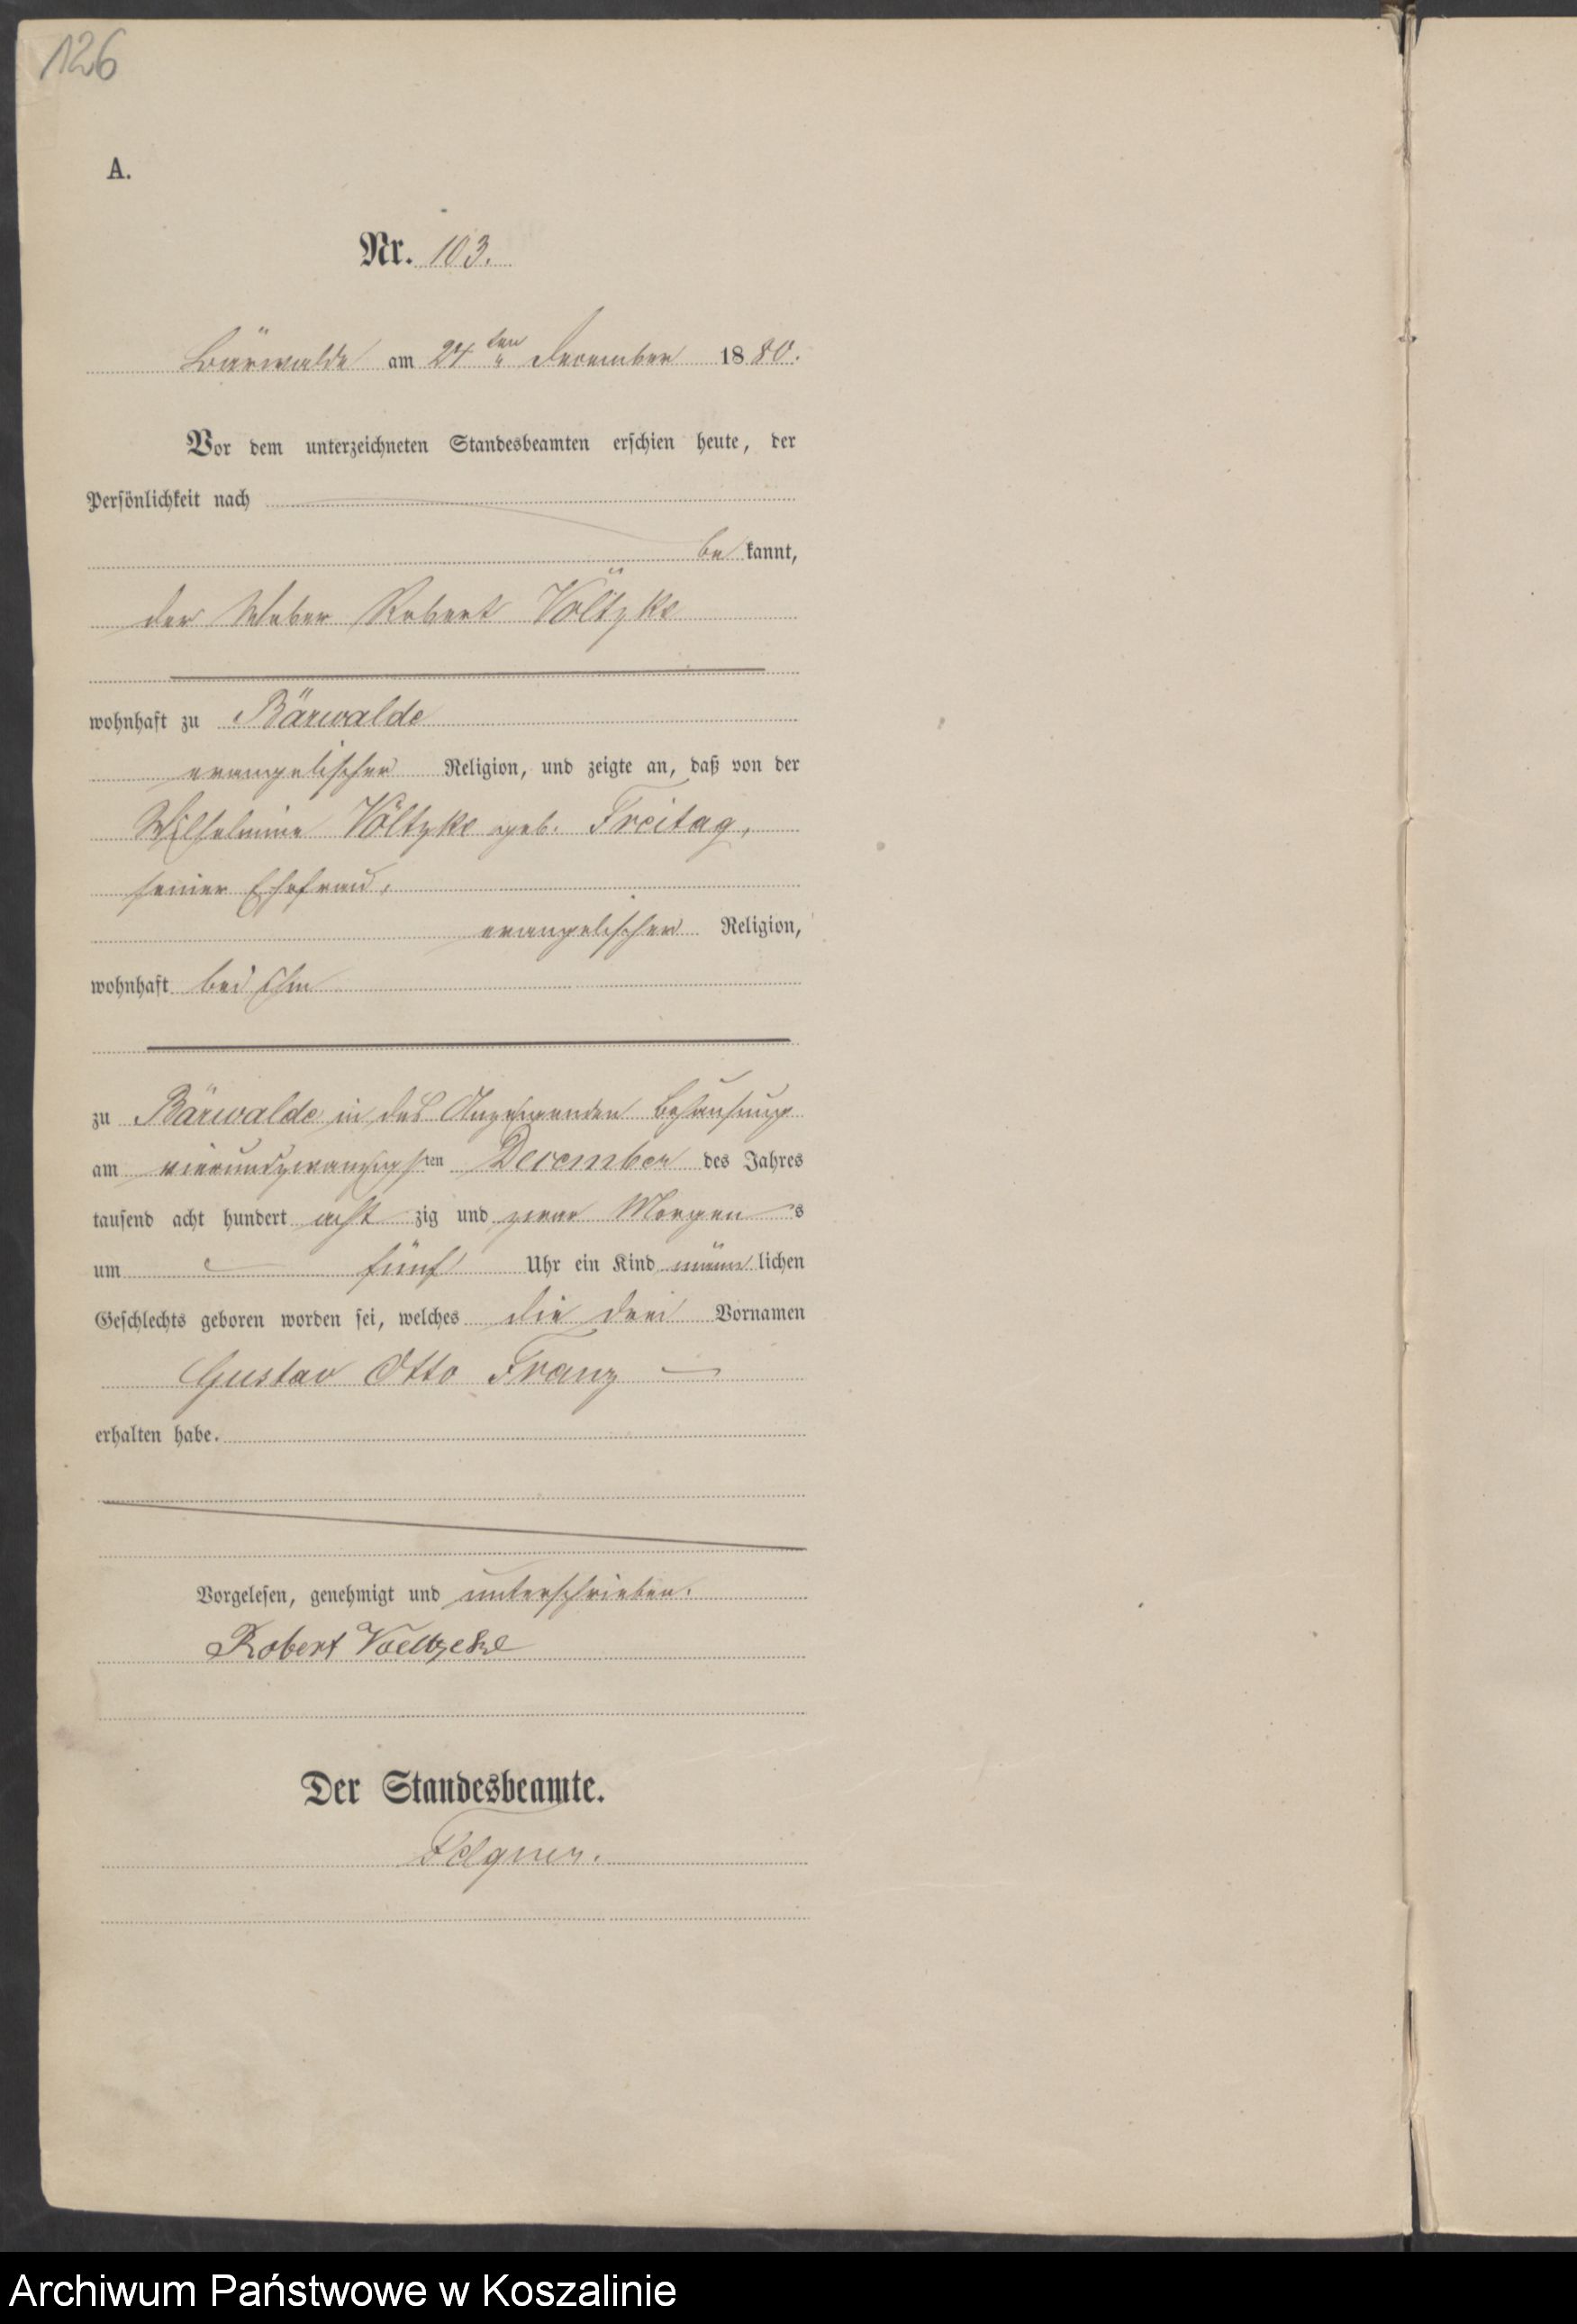 126
A.
Nr. 103.
Bärwalde am 24ten December 1880.
Vor dem unterzeichneten Standesbeamten erschien heute, der
Persönlichkeit nach
bekannt,
der Weber Robert Völtzke
wohnhaft zu Bärwalde
evangelischer Religion, und zeigte an, daß von der
Wilhelmine Völtzke geb. Freitag,
seiner Ehefrau,
evangelischer Religion,
wohnhaft bei ihm
zu Bärwalde in des Anzeigenden Behausung
am vierundzwanzigsten December des Jahres
tausend acht hundert achtzig und zwar Morgens
um fünf Uhr ein Kind männlichen
Geschlechts geboren worden sei, welches die drei Vornamen
Gustav Otto Franz
erhalten habe.
Vorgelesen, genehmigt und unterschrieben.
Robert Voeltzke
Der Standesbeamte.
Felgner.
Archiwum Państwowe w Koszalinie